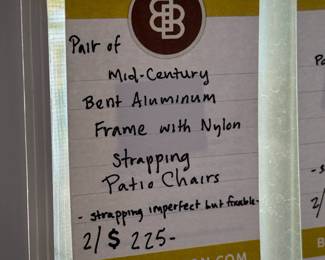 Pair of
Mid-Century
Bent Aluminum
Frame with Nylon
Strapping
Patio Chairs
- strapping imperfect but fixable -
2/$ 225-
.COM